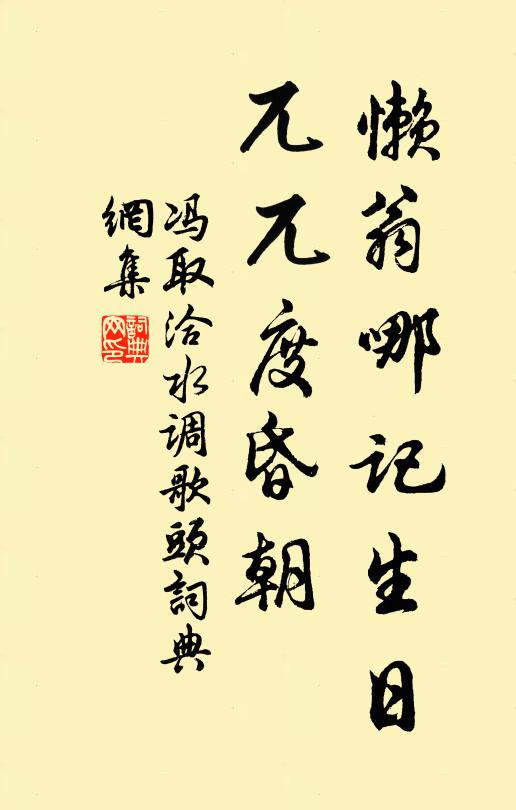 懒翁哪记生日
兀兀度昏朝
冯取洽水调歌頭詞典
網集
詞典網印